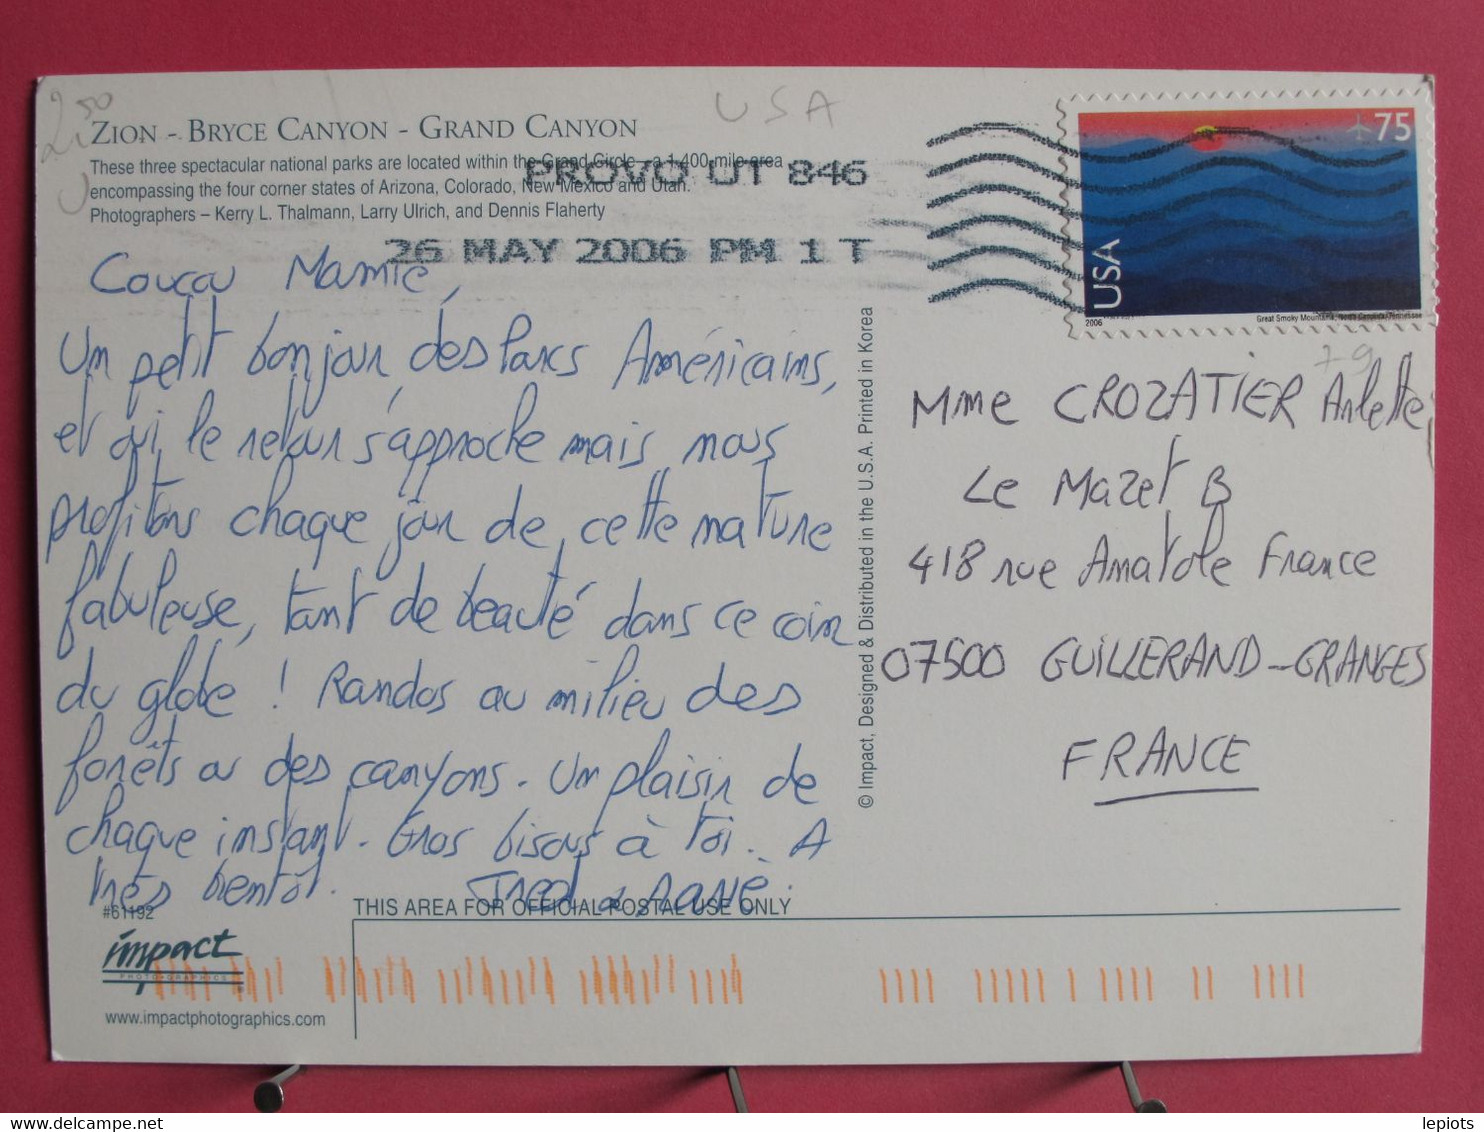 2,50
USA
ZION - BRYCE CANYON - GRAND CANYON
These three spectacular national parks are located within the Grand Circle – a 1,400-mile area
encompassing the four corner states of Arizona, Colorado, New Mexico and Utah.
Photographers – Kerry L. Thalmann, Larry Ulrich, and Dennis Flaherty
PROVO UT 846
26 MAY 2006 PM 1 T
75
USA
2006
Great Smoky Mountains, North Carolina/Tennessee
79
Coucou Mamie,
Un petit bonjour des Parcs Américains,
et oui, le retour s'approche mais nous
profitons chaque jour de cette nature
fabuleuse, tant de beauté dans ce coin
du globe ! Randos au milieu des
forêts ou des canyons. Un plaisir de
chaque instant. Gros bisous à toi. A
très bientôt.
Fred
© Impact, Designed & Distributed in the U.S.A. Printed in Korea
Mme CROZATIER Arlette
Le Mazet B
418 rue Anatole France
07500 GUILLERAND-GRANGES
FRANCE
THIS AREA FOR OFFICIAL POSTAL USE ONLY
#61192
impact
PHOTOGRAPHICS
www.impactphotographics.com
lepiots
delcampe.net